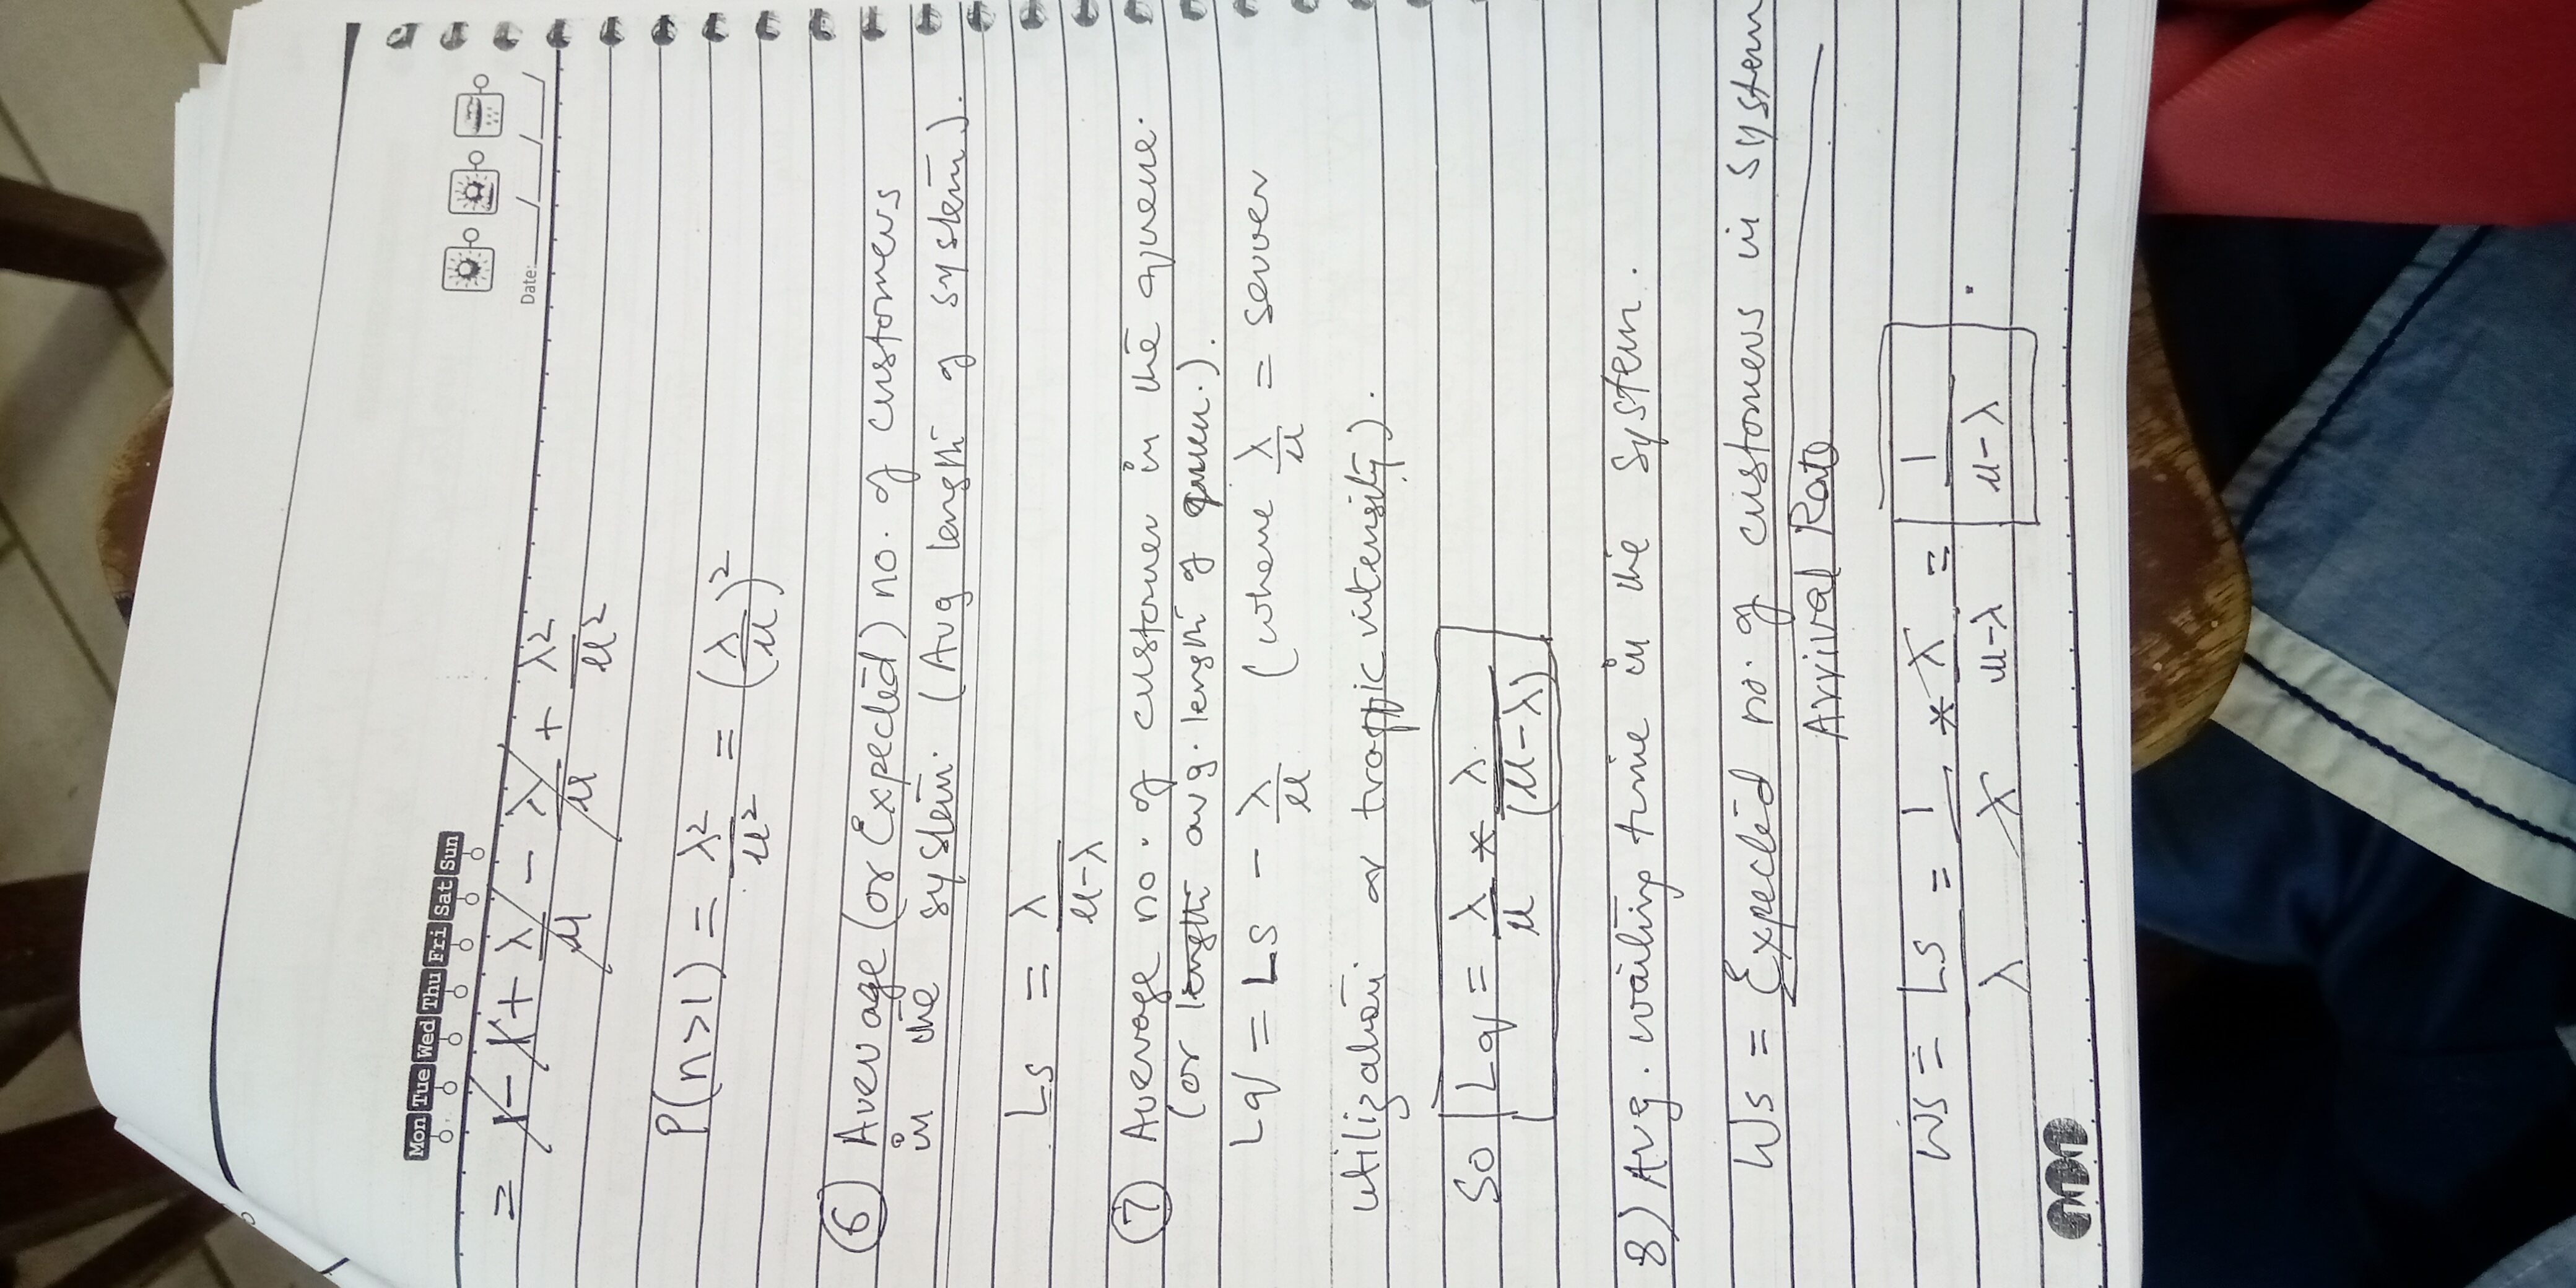 Mon Tue Wed Thu Fri Sat Sun
Date: / / /
= 1 - 1 + λ/μ - λ/μ + λ²/μ²
P(n>1) = λ²/μ² = (λ/μ)²
⑥ Average (or Expected) no. of customers
in the system. (Avg length of system).
Ls = λ/μ-λ
⑦ Average no. of customer in the queue.
(or length avg. length of queue.).
Lq = Ls - λ/μ (where λ/μ = server
utilization or traffic intensity).
So Lq = λ/μ * λ/(μ-λ)
8) Avg. waiting time in the System.
Ws = Expected no. of customers in system
Arrival Rate
Ws = Ls/λ = 1/λ * λ/μ-λ = 1/μ-λ